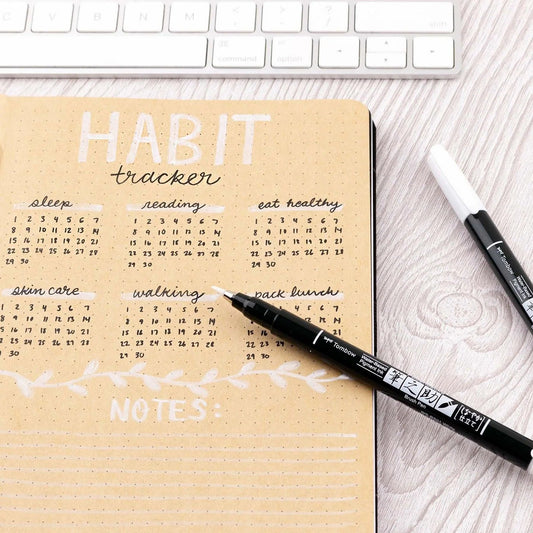 < , > . ? / shift
command option
HABIT
tracker
sleep reading eat healthy
1 2 3 4 5 6 7 1 2 3 4 5 6 7 1 2 3 4 5 6 7
8 9 10 11 12 13 14 8 9 10 11 12 13 14 8 9 10 11 12 13 14
15 16 17 18 19 20 21 15 16 17 18 19 20 21 15 16 17 18 19 20 21
22 23 24 25 26 27 28 22 23 24 25 26 27 28 22 23 24 25 26 27 28
29 30 29 30 29 30
skin care walking pack lunch
1 2 3 4 5 6 7 1 2 3 4 5 6 7 4 5 6 7
8 9 10 11 12 13 14 8 9 10 11 12 13 14 12 13 14
15 16 17 18 19 20 21 15 16 17 18 19 20 21 15 20 21
22 23 24 25 26 27 28 22 23 24 25 26 27 28 22 23 24 25
29 30 29 30 29 30
NOTES:
Tombow
Water-Based
Pigment Ink
筆之助
Brush Pen
しっかり
仕立て
Tombow